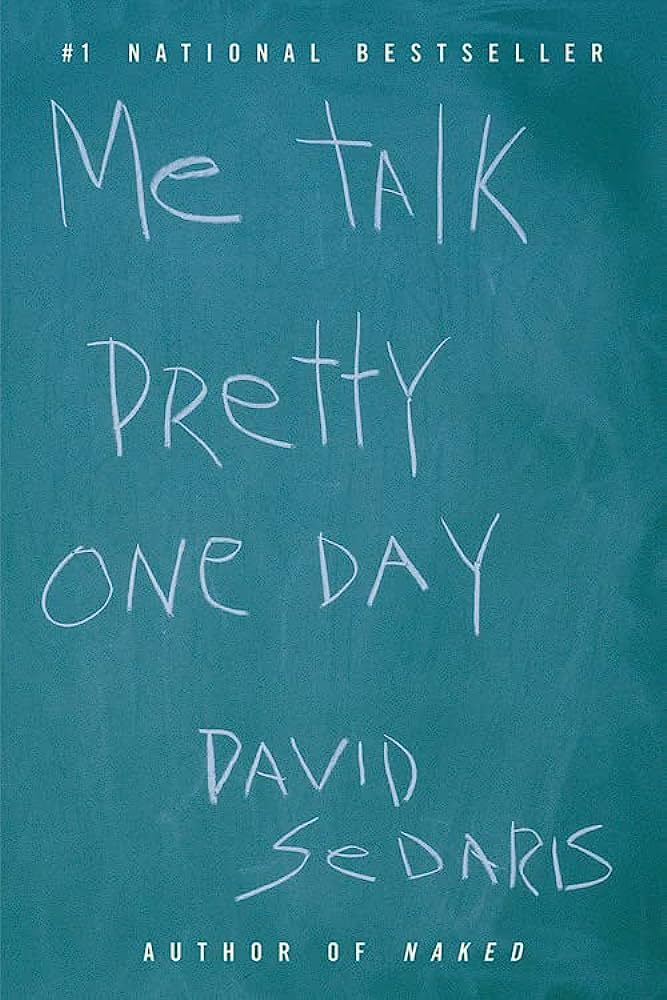 #1 NATIONAL BESTSELLER
Me tALK
PRetty
ONe DAY
DAVID
SeDARIS
AUTHOR OF NAKED